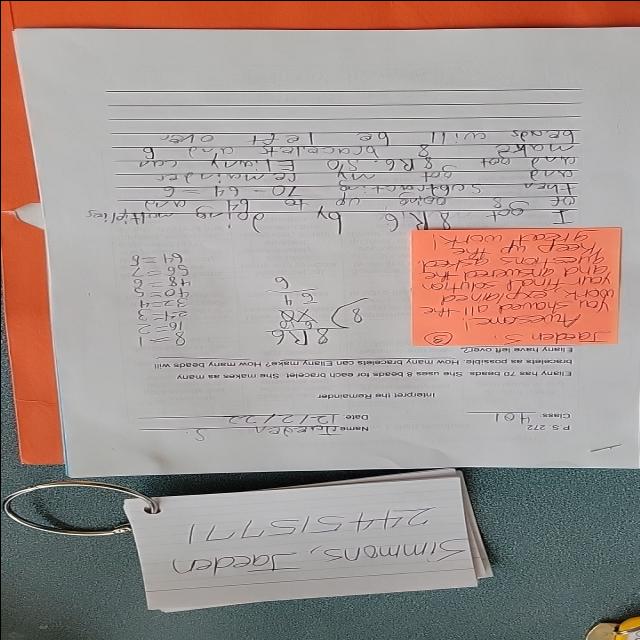 Simmons, Jaeden
244515771
P.S. 272
Class: 401
Name: Jaeden S.
Date: 12/12/22
Interpret the Remainder
Eliany has 70 beads. She uses 8 beads for each bracelet. She makes as many
bracelets as possible. How many bracelets can Eliany make? How many beads will
Eliany have left over?
Jaeden S.
Awesome!
You showed all the
work, explained
your final solution
and answered the
questions asked.
Keep up the
great work!
8 R6
8
64
6
8=1
16=2
24=3
32=4
40=5
48=6
56=7
64=8
I got 8R6 by doing multiples
of 8 going up to 64 and
then subtracting 70-64=6
and got my remainder
and got 8R6. SO Eliany can
make 8 bracelets and 6
beads will be left over